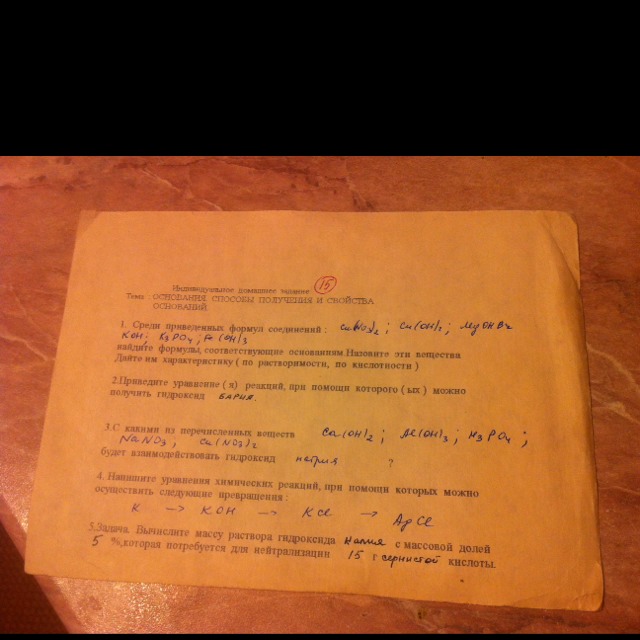 Индивидуальное домашнее задание 15
Тема : ОСНОВАНИЯ. СПОСОБЫ ПОЛУЧЕНИЯ И СВОЙСТВА
ОСНОВАНИЙ.
1. Среди приведенных формул соединений : Cu(NO3)2 ; Cu(OH)2 ; MgOHBr
KOH; K3PO4 ; Fe(OH)3
найдите формулы, соответствующие основаниям.Назовите эти вещества
Дайте им характеристику ( по растворимости, по кислотности )
2.Приведите уравнение ( я ) реакций, при помощи которого ( ых ) можно
получить гидроксид БАРИЯ.
3.С какими из перечисленных веществ Ca(OH)2 ; Al(OH)3 ; H3PO4 ;
NaNO3 ; Cu(NO3)2
будет взаимодействовать гидроксид натрия ?
4. Напишите уравнения химических реакций, при помощи которых можно
осуществить следующие превращения :
K → KOH → KCl → AgCl
5.Задача. Вычислите массу раствора гидроксида калия с массовой долей
5 %,которая потребуется для нейтрализации 15 г сернистой кислоты.